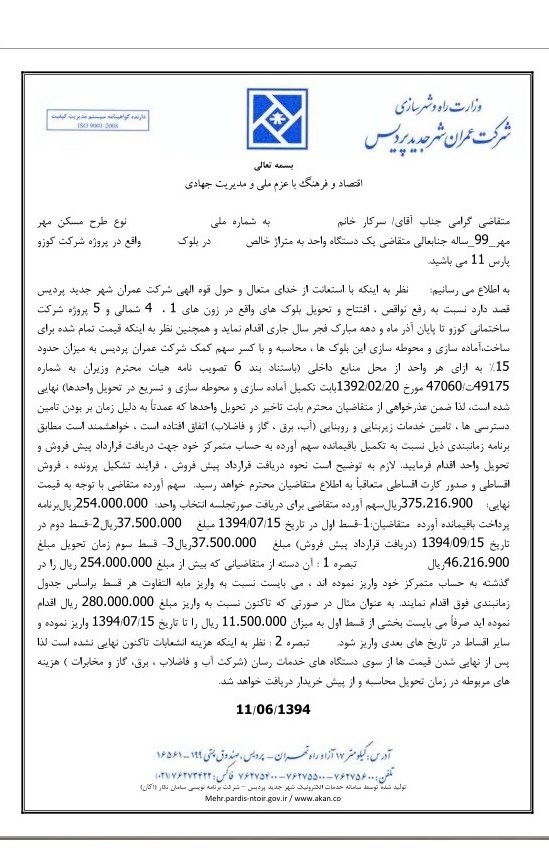 وزارت راه و شهرسازی
شرکت عمران شهر جدید پردیس
دارنده گواهینامه سیستم مدیریت کیفیت
ISO 9001-2008
بسمه تعالی
اقتصاد و فرهنگ با عزم ملی و مدیریت جهادی
متقاضی گرامی جناب آقای/ سرکار خانم به شماره ملی نوع طرح مسکن مهر
مهر_99_ساله جنابعالی متقاضی یک دستگاه واحد به متراژ خالص در بلوک واقع در پروژه شرکت کوزو
پارس 11 می باشید.
به اطلاع می رسانیم: نظر به اینکه با استعانت از خدای متعال و حول قوه الهی شرکت عمران شهر جدید پردیس
قصد دارد نسبت به رفع نواقص ، افتتاح و تحویل بلوک های واقع در زون های 1 ، 4 شمالی و 5 پروژه شرکت
ساختمانی کوزو تا پایان آذر ماه و دهه مبارک فجر سال جاری اقدام نماید و همچنین نظر به اینکه قیمت تمام شده برای
ساخت،آماده سازی و محوطه سازی این بلوک ها ، محاسبه و با کسر سهم کمک شرکت عمران پردیس به میزان حدود
15٪ به ازای هر واحد از محل منابع داخلی (باستناد بند 6 تصویب نامه هیات محترم وزیران به شماره
49175/ت47060 مورخ 1392/02/20بابت تکمیل آماده سازی و محوطه سازی و تسریع در تحویل واحدها) نهایی
شده است، لذا ضمن عذرخواهی از متقاضیان محترم بابت تاخیر در تحویل واحدها که عمدتاً به دلیل زمان بر بودن تامین
دسترسی ها ، تامین خدمات زیربنایی و روبنایی (آب، برق ، گاز و فاضلاب) اتفاق افتاده است ، خواهشمند است مطابق
برنامه زمانبندی ذیل نسبت به تکمیل باقیمانده سهم آورده به حساب متمرکز خود جهت دریافت قرارداد پیش فروش و
تحویل واحد اقدام فرمایید. لازم به توضیح است نحوه دریافت قرارداد پیش فروش ، فرایند تشکیل پرونده ، فروش
اقساطی و صدور کارت اقساطی متعاقباً به اطلاع متقاضیان محترم خواهد رسید. سهم آورده متقاضی با توجه به قیمت
نهایی: 375.216.900 ریال‌سهم آورده متقاضی برای دریافت صورتجلسه انتخاب واحد: 254.000.000ریال‌برنامه
پرداخت باقیمانده آورده متقاضیان:1-قسط اول در تاریخ 1394/07/15 مبلغ 37.500.000ریال2-قسط دوم در
تاریخ 1394/09/15 (دریافت قرارداد پیش فروش) مبلغ 37.500.000ریال3- قسط سوم زمان تحویل مبلغ
46.216.900ریال تبصره 1 : آن دسته از متقاضیانی که بیش از مبلغ 254.000.000 ریال را در
گذشته به حساب متمرکز خود واریز نموده اند ، می بایست نسبت به واریز مابه التفاوت هر قسط براساس جدول
زمانبندی فوق اقدام نمایند. به عنوان مثال در صورتی که تاکنون نسبت به واریز مبلغ 280.000.000 ریال اقدام
نموده اید صرفاً می بایست بخشی از قسط اول به میزان 11.500.000 ریال را تا تاریخ 1394/07/15 واریز نموده و
سایر اقساط در تاریخ های بعدی واریز شود. تبصره 2 : نظر به اینکه هزینه انشعابات تاکنون نهایی نشده است لذا
پس از نهایی شدن قیمت ها از سوی دستگاه های خدمات رسان (شرکت آب و فاضلاب ، برق، گاز و مخابرات ) هزینه
های مربوطه در زمان تحویل محاسبه و از پیش خریدار دریافت خواهد شد.
11/06/1394
آدرس: کیلومتر ۱۷ آزاد راه تهران - پردیس، صندوق پستی ۱۹۹-۱۶۵۶۱
تلفن: ۷۶۲۷۵۶۰۰-۷۶۲۷۵۵۰۰-۷۶۲۷۵۴۰۰ فاکس: ۷۶۲۷۳۴۲۲(۰۲۱)
تولید شده توسط سامانه خدمات الکترونیک شهر جدید پردیس - شرکت برنامه نویسی سامان نگار (آکان)
Mehr.pardis-ntoir.gov.ir / www.akan.co